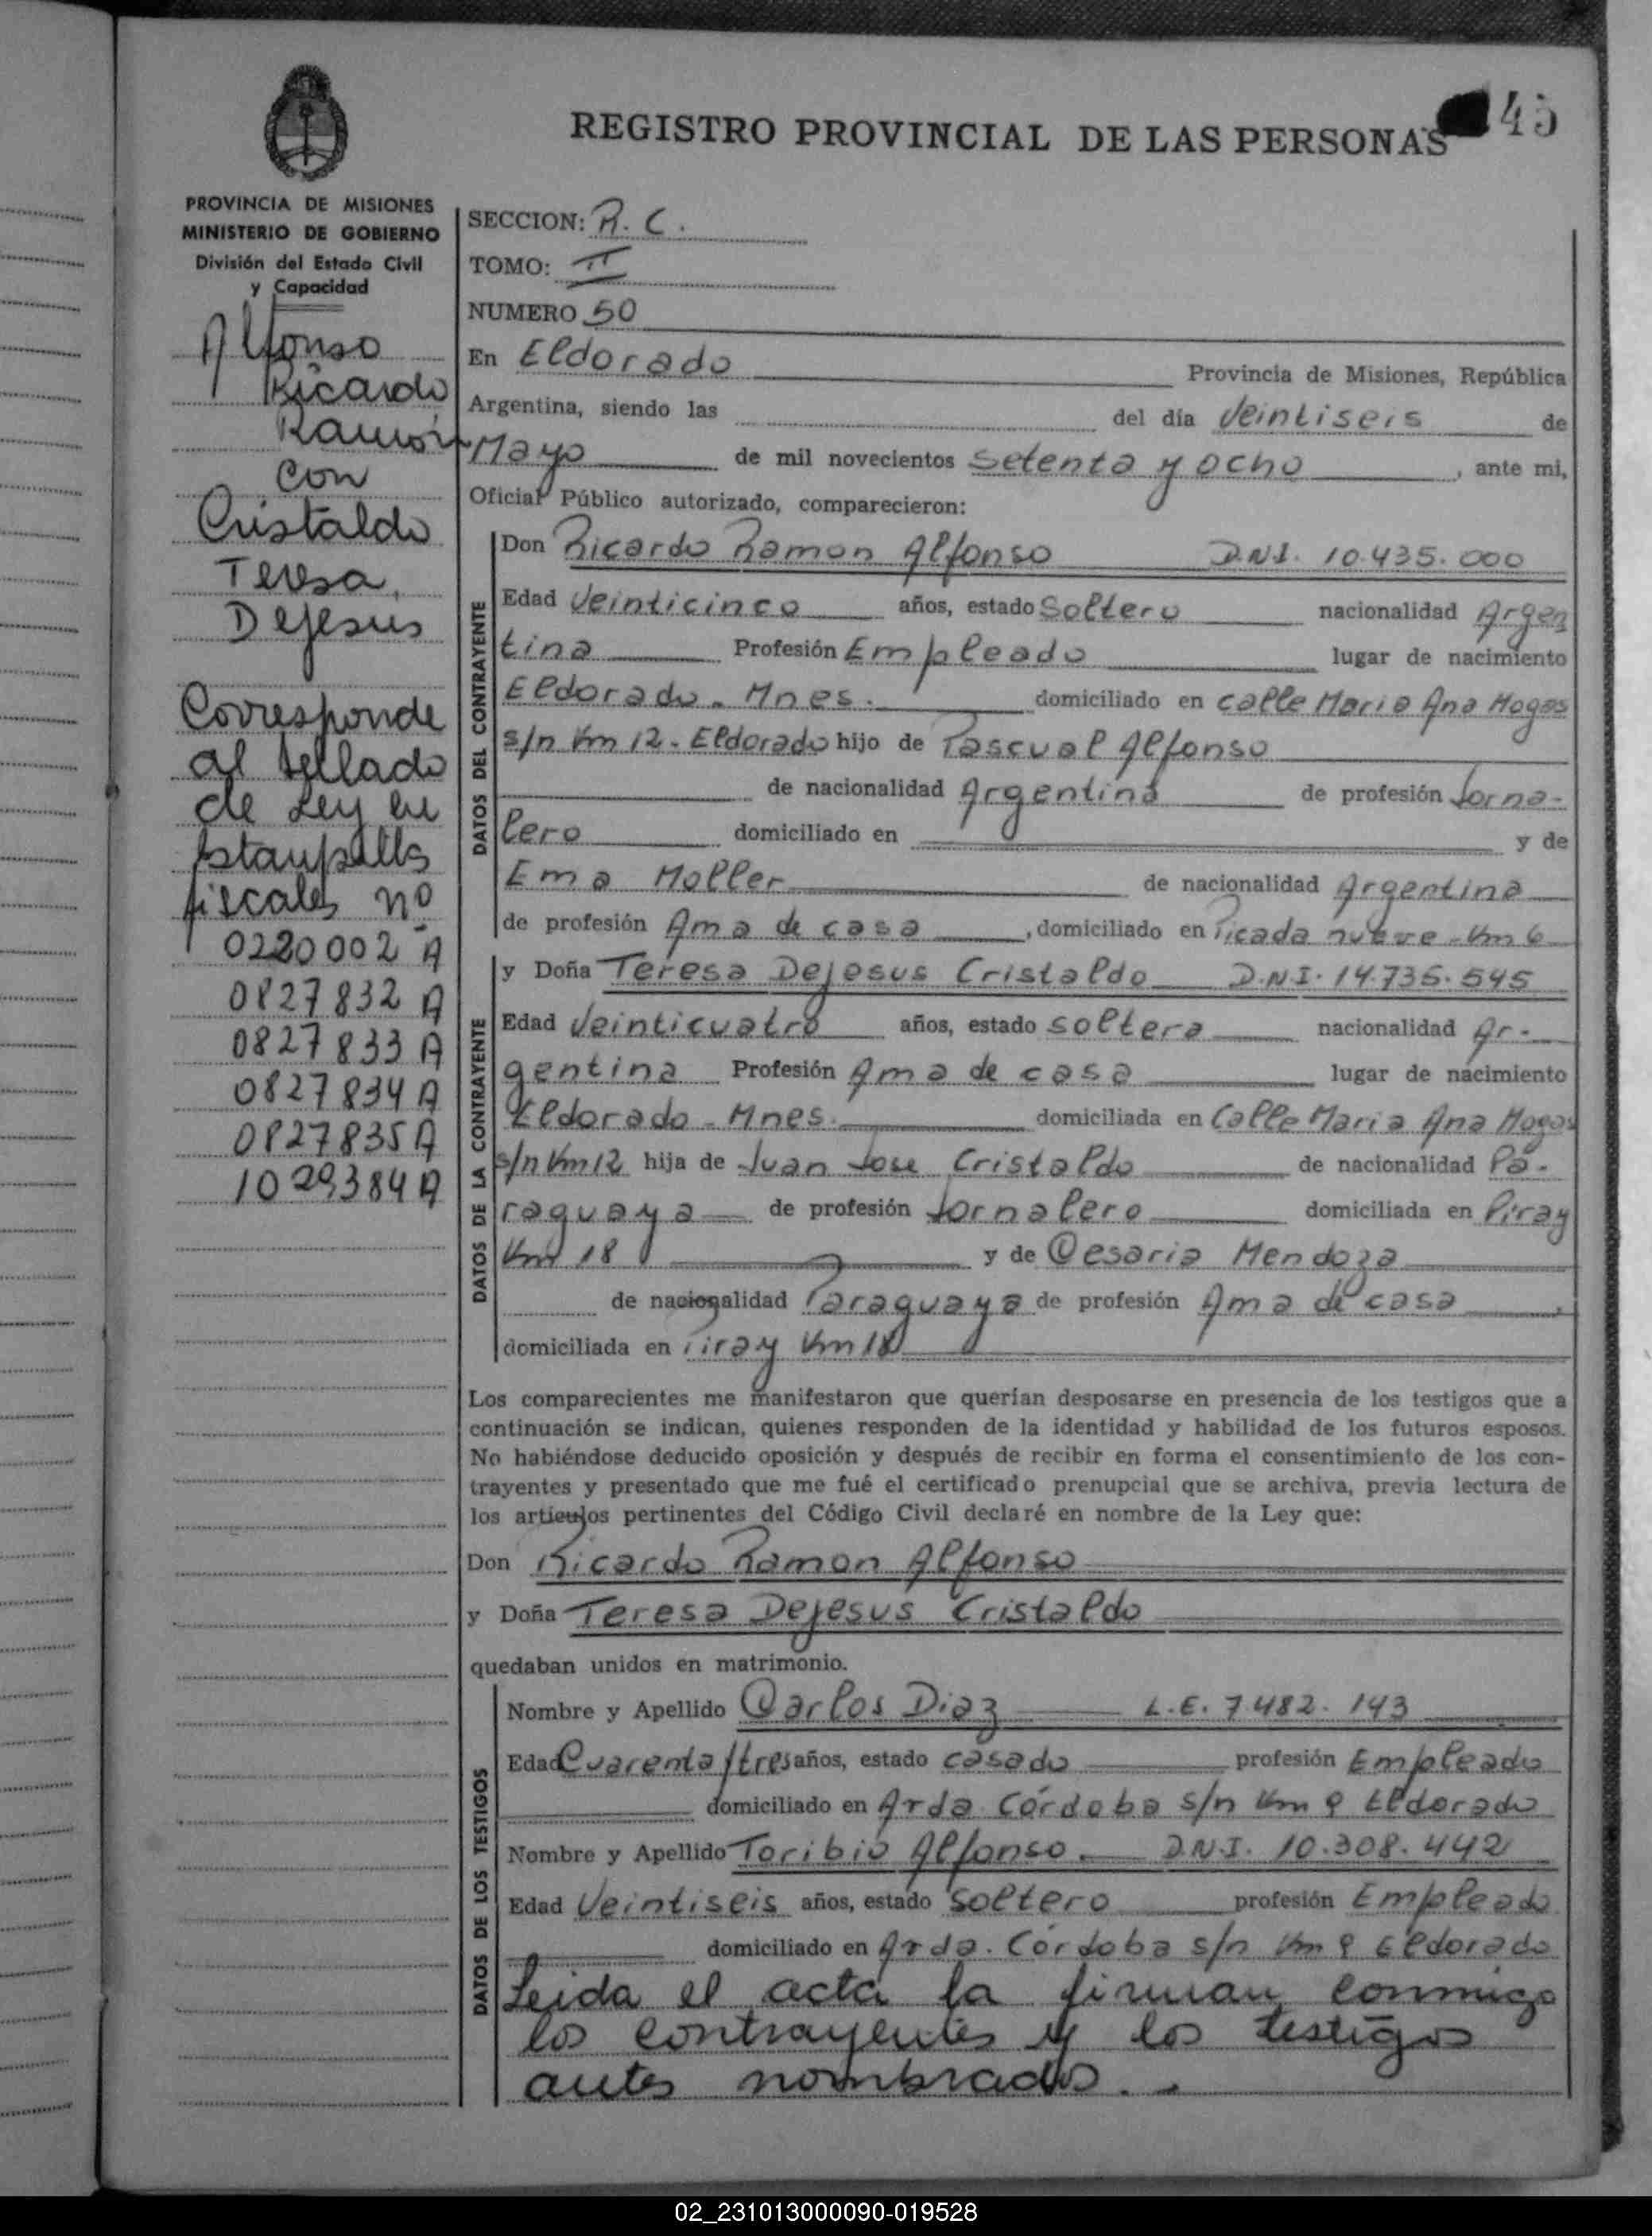 REGISTRO PROVINCIAL DE LAS PERSONAS 45
PROVINCIA DE MISIONES
MINISTERIO DE GOBIERNO
División del Estado Civil
y Capacidad
Alfonso
Ricardo
Ramón
con
Cristaldo
Teresa
Dejesus
Corresponde
al sellado
de Ley en
estampilla
fiscales nº
0220002 A
0827832 A
0827833 A
0827834 A
0827835 A
1029384 A
SECCION: R. C.
TOMO: II
NUMERO 50
En Eldorado Provincia de Misiones, República
Argentina, siendo las del día Veintiseis de
Mayo de mil novecientos setenta y ocho, ante mi,
Oficial Público autorizado, comparecieron:
DATOS DEL CONTRAYENTE
Don Ricardo Ramon Alfonso D.N.I. 10.435.000
Edad Veinticinco años, estado Soltero nacionalidad Argen
tina Profesión Empleado lugar de nacimiento
Eldorado - Mnes. domiciliado en calle Maria Ana Mogas
s/n Km 12 - Eldorado hijo de Pascual Alfonso
de nacionalidad Argentina de profesión Jorna-
lero domiciliado en y de
Ema Moller de nacionalidad Argentina
de profesión Ama de casa, domiciliado en Picada nueve - Km 6
DATOS DE LA CONTRAYENTE
y Doña Teresa Dejesus Cristaldo D.N.I. 14.735.545
Edad Veinticuatro años, estado soltera nacionalidad Ar-
gentina Profesión Ama de casa lugar de nacimiento
Eldorado - Mnes. domiciliada en Calle Maria Ana Mogas
s/n Km 12 hija de Juan Jose Cristaldo de nacionalidad Pa-
raguaya de profesión Jornalero domiciliada en Piray
Km 18 y de Cesaria Mendoza
de nacionalidad Paraguaya de profesión Ama de casa,
domiciliada en Piray Km 18
Los comparecientes me manifestaron que querían desposarse en presencia de los testigos que a
continuación se indican, quienes responden de la identidad y habilidad de los futuros esposos.
No habiéndose deducido oposición y después de recibir en forma el consentimiento de los con-
trayentes y presentado que me fué el certificado prenupcial que se archiva, previa lectura de
los artículos pertinentes del Código Civil declaré en nombre de la Ley que:
Don Ricardo Ramon Alfonso
y Doña Teresa Dejesus Cristaldo
quedaban unidos en matrimonio.
DATOS DE LOS TESTIGOS
Nombre y Apellido Carlos Diaz L.E. 7.482.143
Edad Cuarenta/tres años, estado casado profesión Empleado
domiciliado en Avda. Córdoba s/n Km 9 Eldorado
Nombre y Apellido Toribio Alfonso. D.N.I. 10.308.442
Edad Veintiseis años, estado Soltero profesión Empleado
domiciliado en Avda. Córdoba s/n Km 9 Eldorado
Leida el acta la firman conmigo
los contrayentes y los testigos
antes nombrados. -
02_231013000090-019528